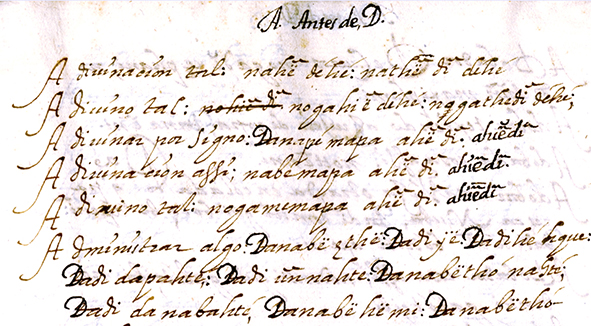 A. Antes de, D.
Adiuinacion tal: nahē dehé: nathē dī dehé
Adiuino tal: nogahiē dēhé: nogathedī dehé,
Adiuinar por signo: Danayé mapa ahē dī. ahuēdī
Adiuinacion assi; nabémapa ahē dī. ahuēdī.
Adiuino tal: nogamēmapa ahē dī. ahuēdī
Administrar algo: Danabē zthē: Dadi ÿe Dadihé
Dadi dapahté: Dadi ūnnahte: Danabëthó nahté;
Dadi da nabahté, Danabē hëmi: Danabëthó